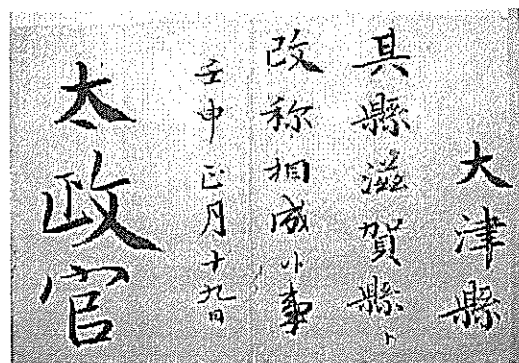 大津縣
其縣滋賀縣ト
改称相成候事
壬申正月十九日
太政官